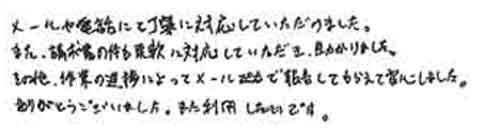 メールや電話にて丁寧に対応していただけました。
また、請求書の件も柔軟に対応していただき、助かりました。
その他、作業の進捗によってメールで報告してもらえて安心しました。
ありがとうございました。また利用したいです。